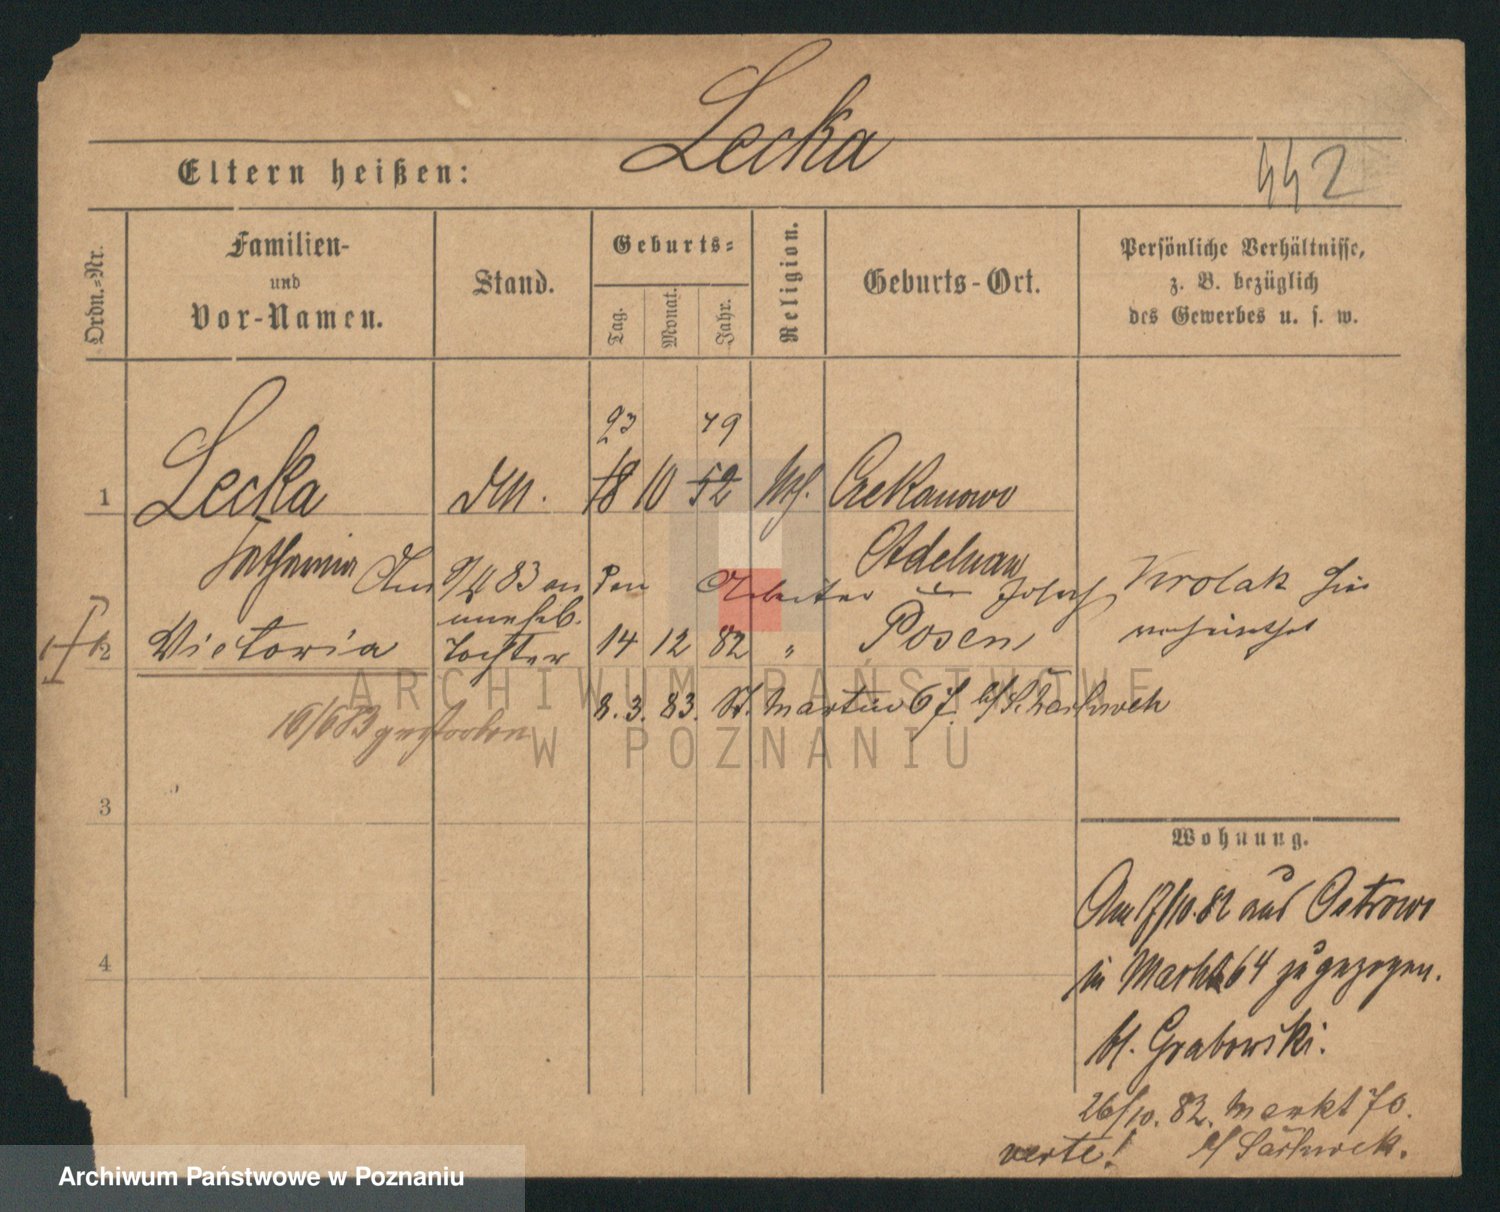 Lecka
Eltern heißen:
442
Ordn.=Nr.
Familien-
und
Vor-Namen.
Stand.
Geburts=
Tag.
Monat.
Jahr.
Religion.
Geburts-Ort.
Persönliche Verhältnisse,
z. B. bezüglich
des Gewerbes u. s. w.
23 79
1 Lecka 18 10 52 Czekanowo
Adelnau
Am 9/4 83 an den Arbeiter Josef Krolak hier
unehl. verheirathet
2 Victoria Tochter 14 12 82 " Posen
8. 3. 83. St. Martin 67.
16/6 83 gestorben
ARCHIWUM PAŃSTWOWE
W POZNANIU
3
Wohnung.
Am 17/10. 82 aus Ostrowo
4
in Markt 64 zugezogen.
bl. Grabowski.
26/10. 82. Markt 70.
verte!
Archiwum Państwowe w Poznaniu